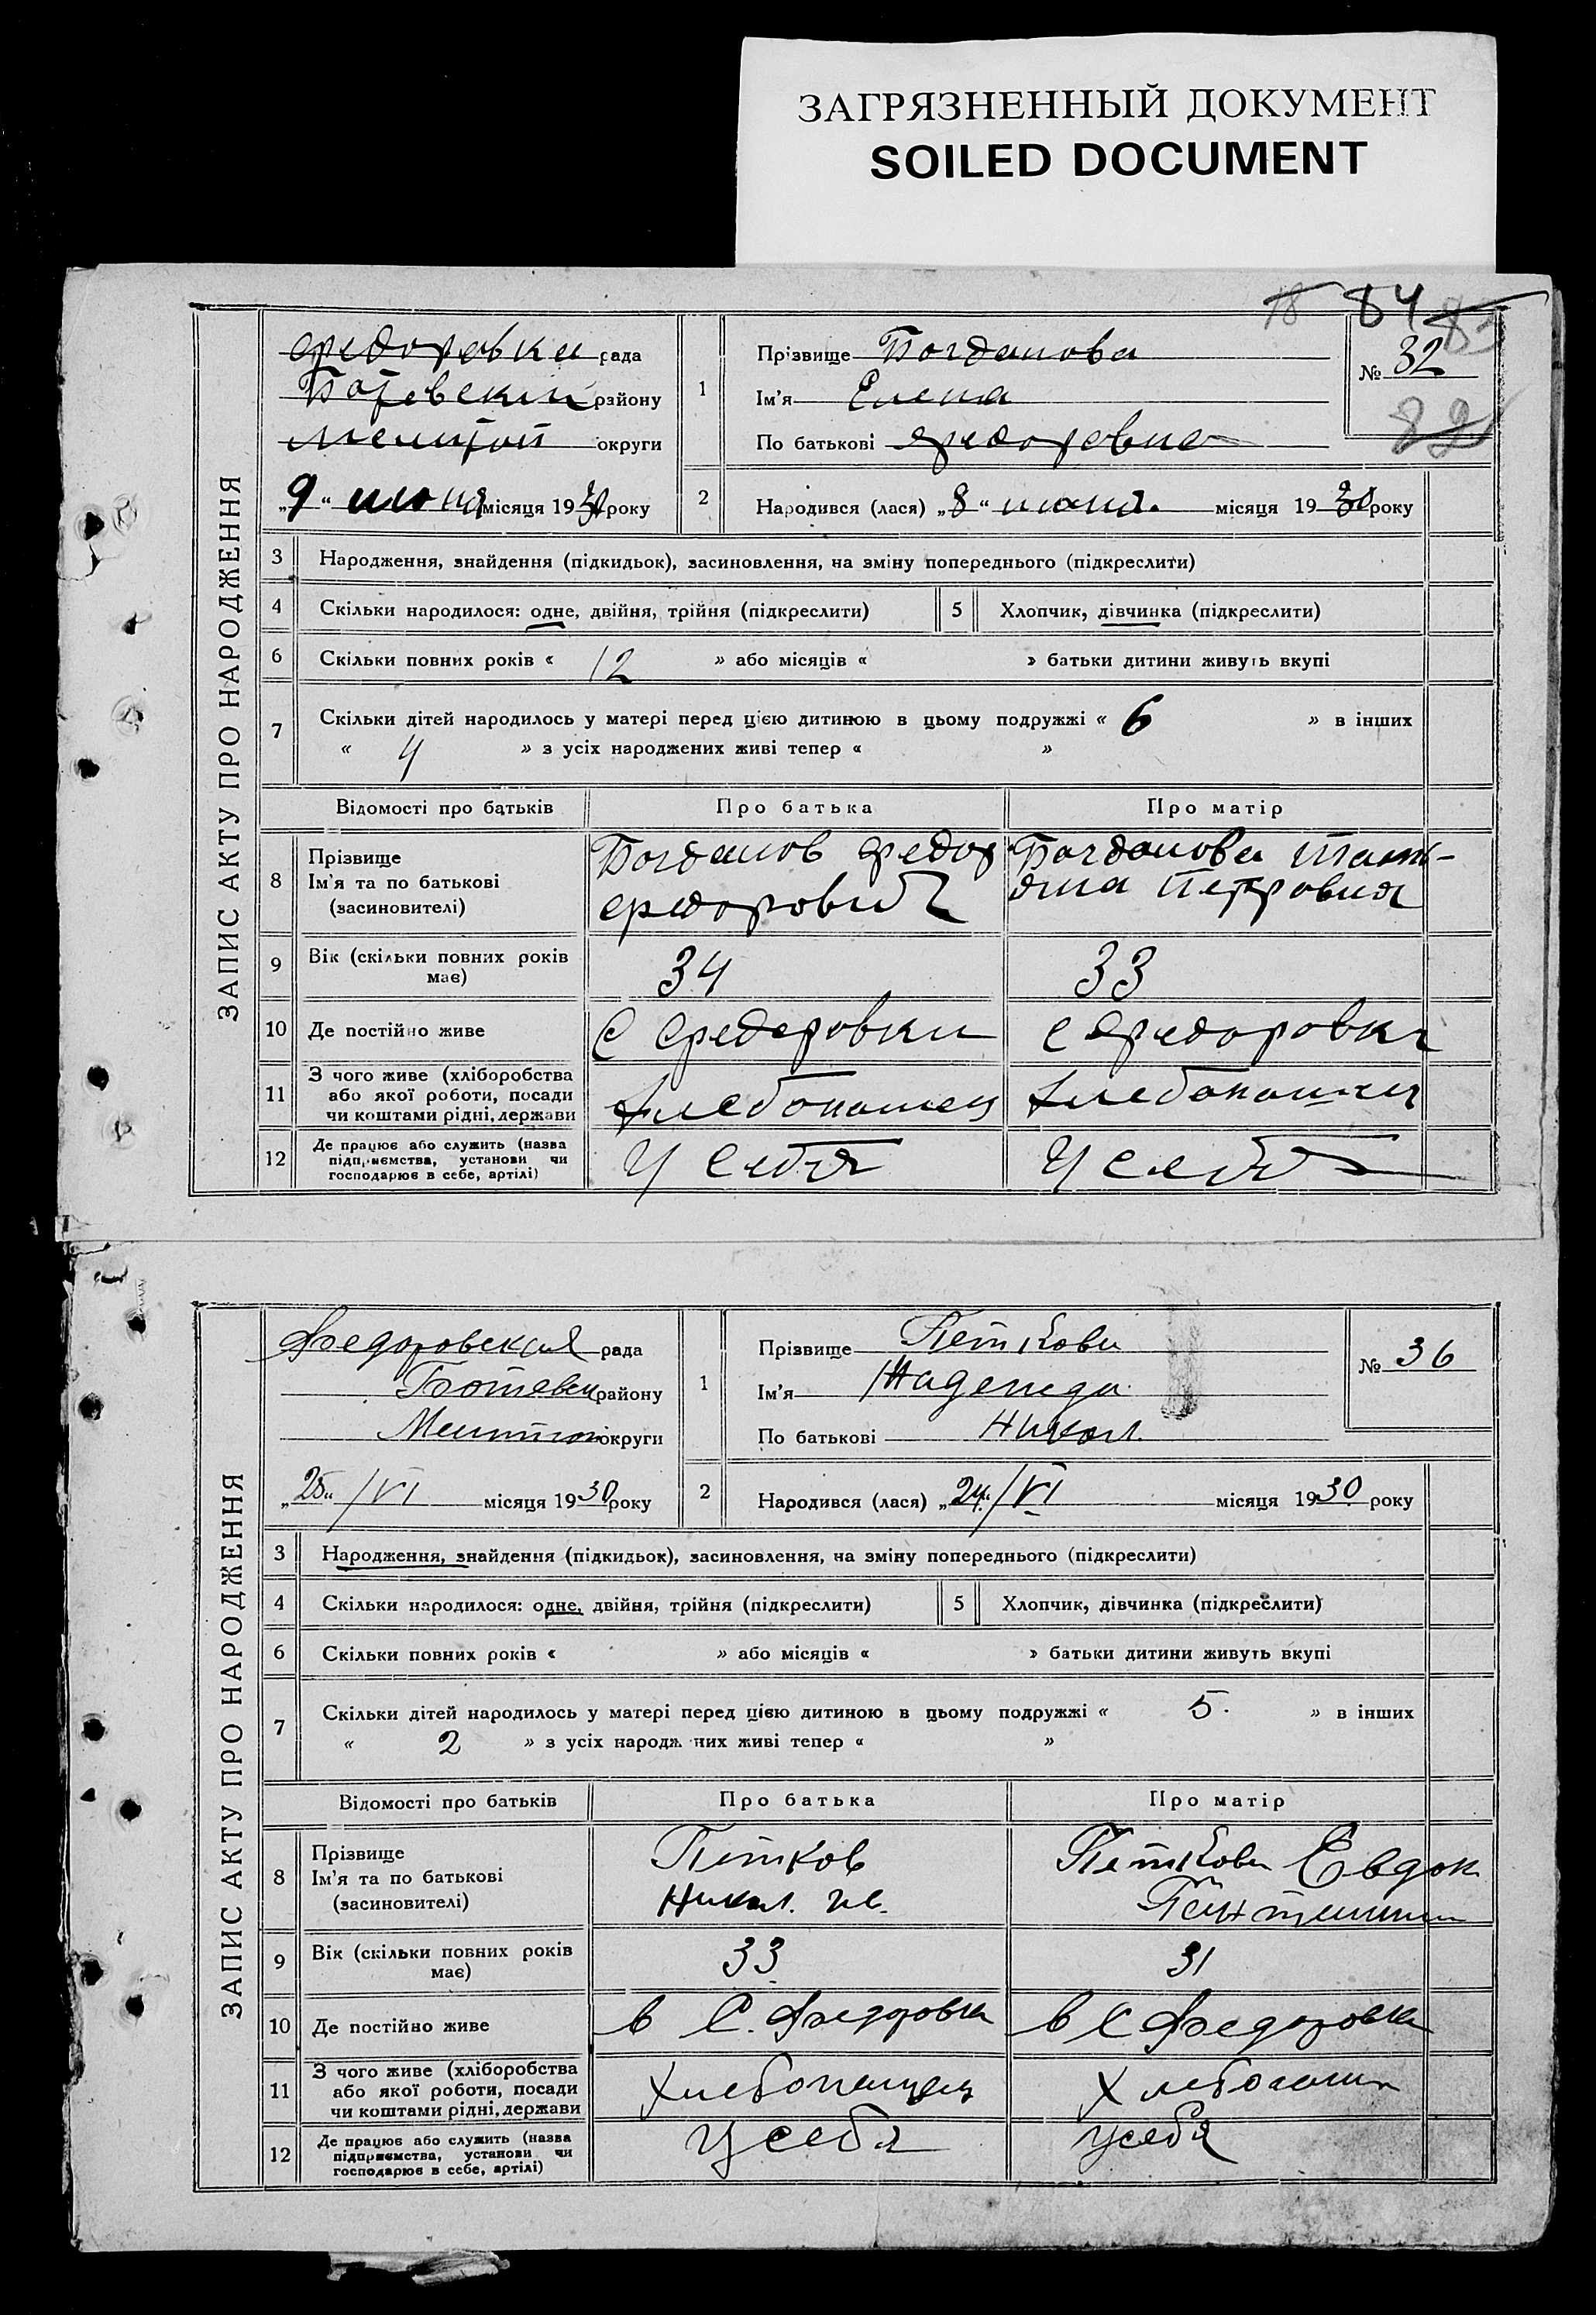 ЗАГРЯЗНЕННЫЙ ДОКУМЕНТ
SOILED DOCUMENT
18 84 83
ЗАПИС АКТУ ПРО НАРОДЖЕННЯ
Федоровка рада
Ботевский району
Мелитоп округи
„9“ июня місяця 1930 року
1
Прізвище Богданова
Ім'я Елена
По батькові Федоровна
№ 32
82
2 Народився (лася) „8“ июня місяця 1930 року
3 Народження, знайдення (підкидьок), засиновлення, на зміну попереднього (підкреслити)
4 Скільки народилося: одне, двійня, трійня (підкреслити) 5 Хлопчик, дівчинка (підкреслити)
6 Скільки повних років « 12 » або місяців « » батьки дитини живуть вкупі
7 Скільки дітей народилось у матері перед цією дитиною в цьому подружжі « 6 » в інших
« 4 » з усіх народжених живі тепер « »
Відомості про батьків Про батька Про матір
8 Прізвище
Ім'я та по батькові
(засиновителі)
Богданов Федор
Федорович
Богданова Тать-
яна Петровна
9 Вік (скільки повних років
має)
34 33
10 Де постійно живе С Федоровки с Федоровки
11 З чого живе (хліборобства
або якої роботи, посади
чи коштами рідні, держави
хлебопашец хлебопашец
12 Де працює або служить (назва
підприємства, установи чи
господарює в себе, артілі)
У себя У себя
ЗАПИС АКТУ ПРО НАРОДЖЕННЯ
Федоровская рада
Ботевск району
Мелитоп округи
„25“ /VI місяця 1930 року
1
Прізвище Петкова
Ім'я Надежда
По батькові Никол.
№ 36
2 Народився (лася) „24“ /VI місяця 1930 року
3 Народження, знайдення (підкидьок), засиновлення, на зміну попереднього (підкреслити)
4 Скільки народилося: одне, двійня, трійня (підкреслити) 5 Хлопчик, дівчинка (підкреслити)
6 Скільки повних років « » або місяців « » батьки дитини живуть вкупі
7 Скільки дітей народилось у матері перед цією дитиною в цьому подружжі « 5. » в інших
« 2 » з усіх народжених живі тепер « »
Відомості про батьків Про батька Про матір
8 Прізвище
Ім'я та по батькові
(засиновителі)
Петков
Никол. Ив.
Петкова Евдок
9 Вік (скільки повних років
має)
33 31
10 Де постійно живе в С. Федоровка в С Федоровка
11 З чого живе (хліборобства
або якої роботи, посади
чи коштами рідні, держави
Хлебопашец Хлебопаш
12 Де працює або служить (назва
підприємства, установи чи
господарює в себе, артілі)
У себя У себя